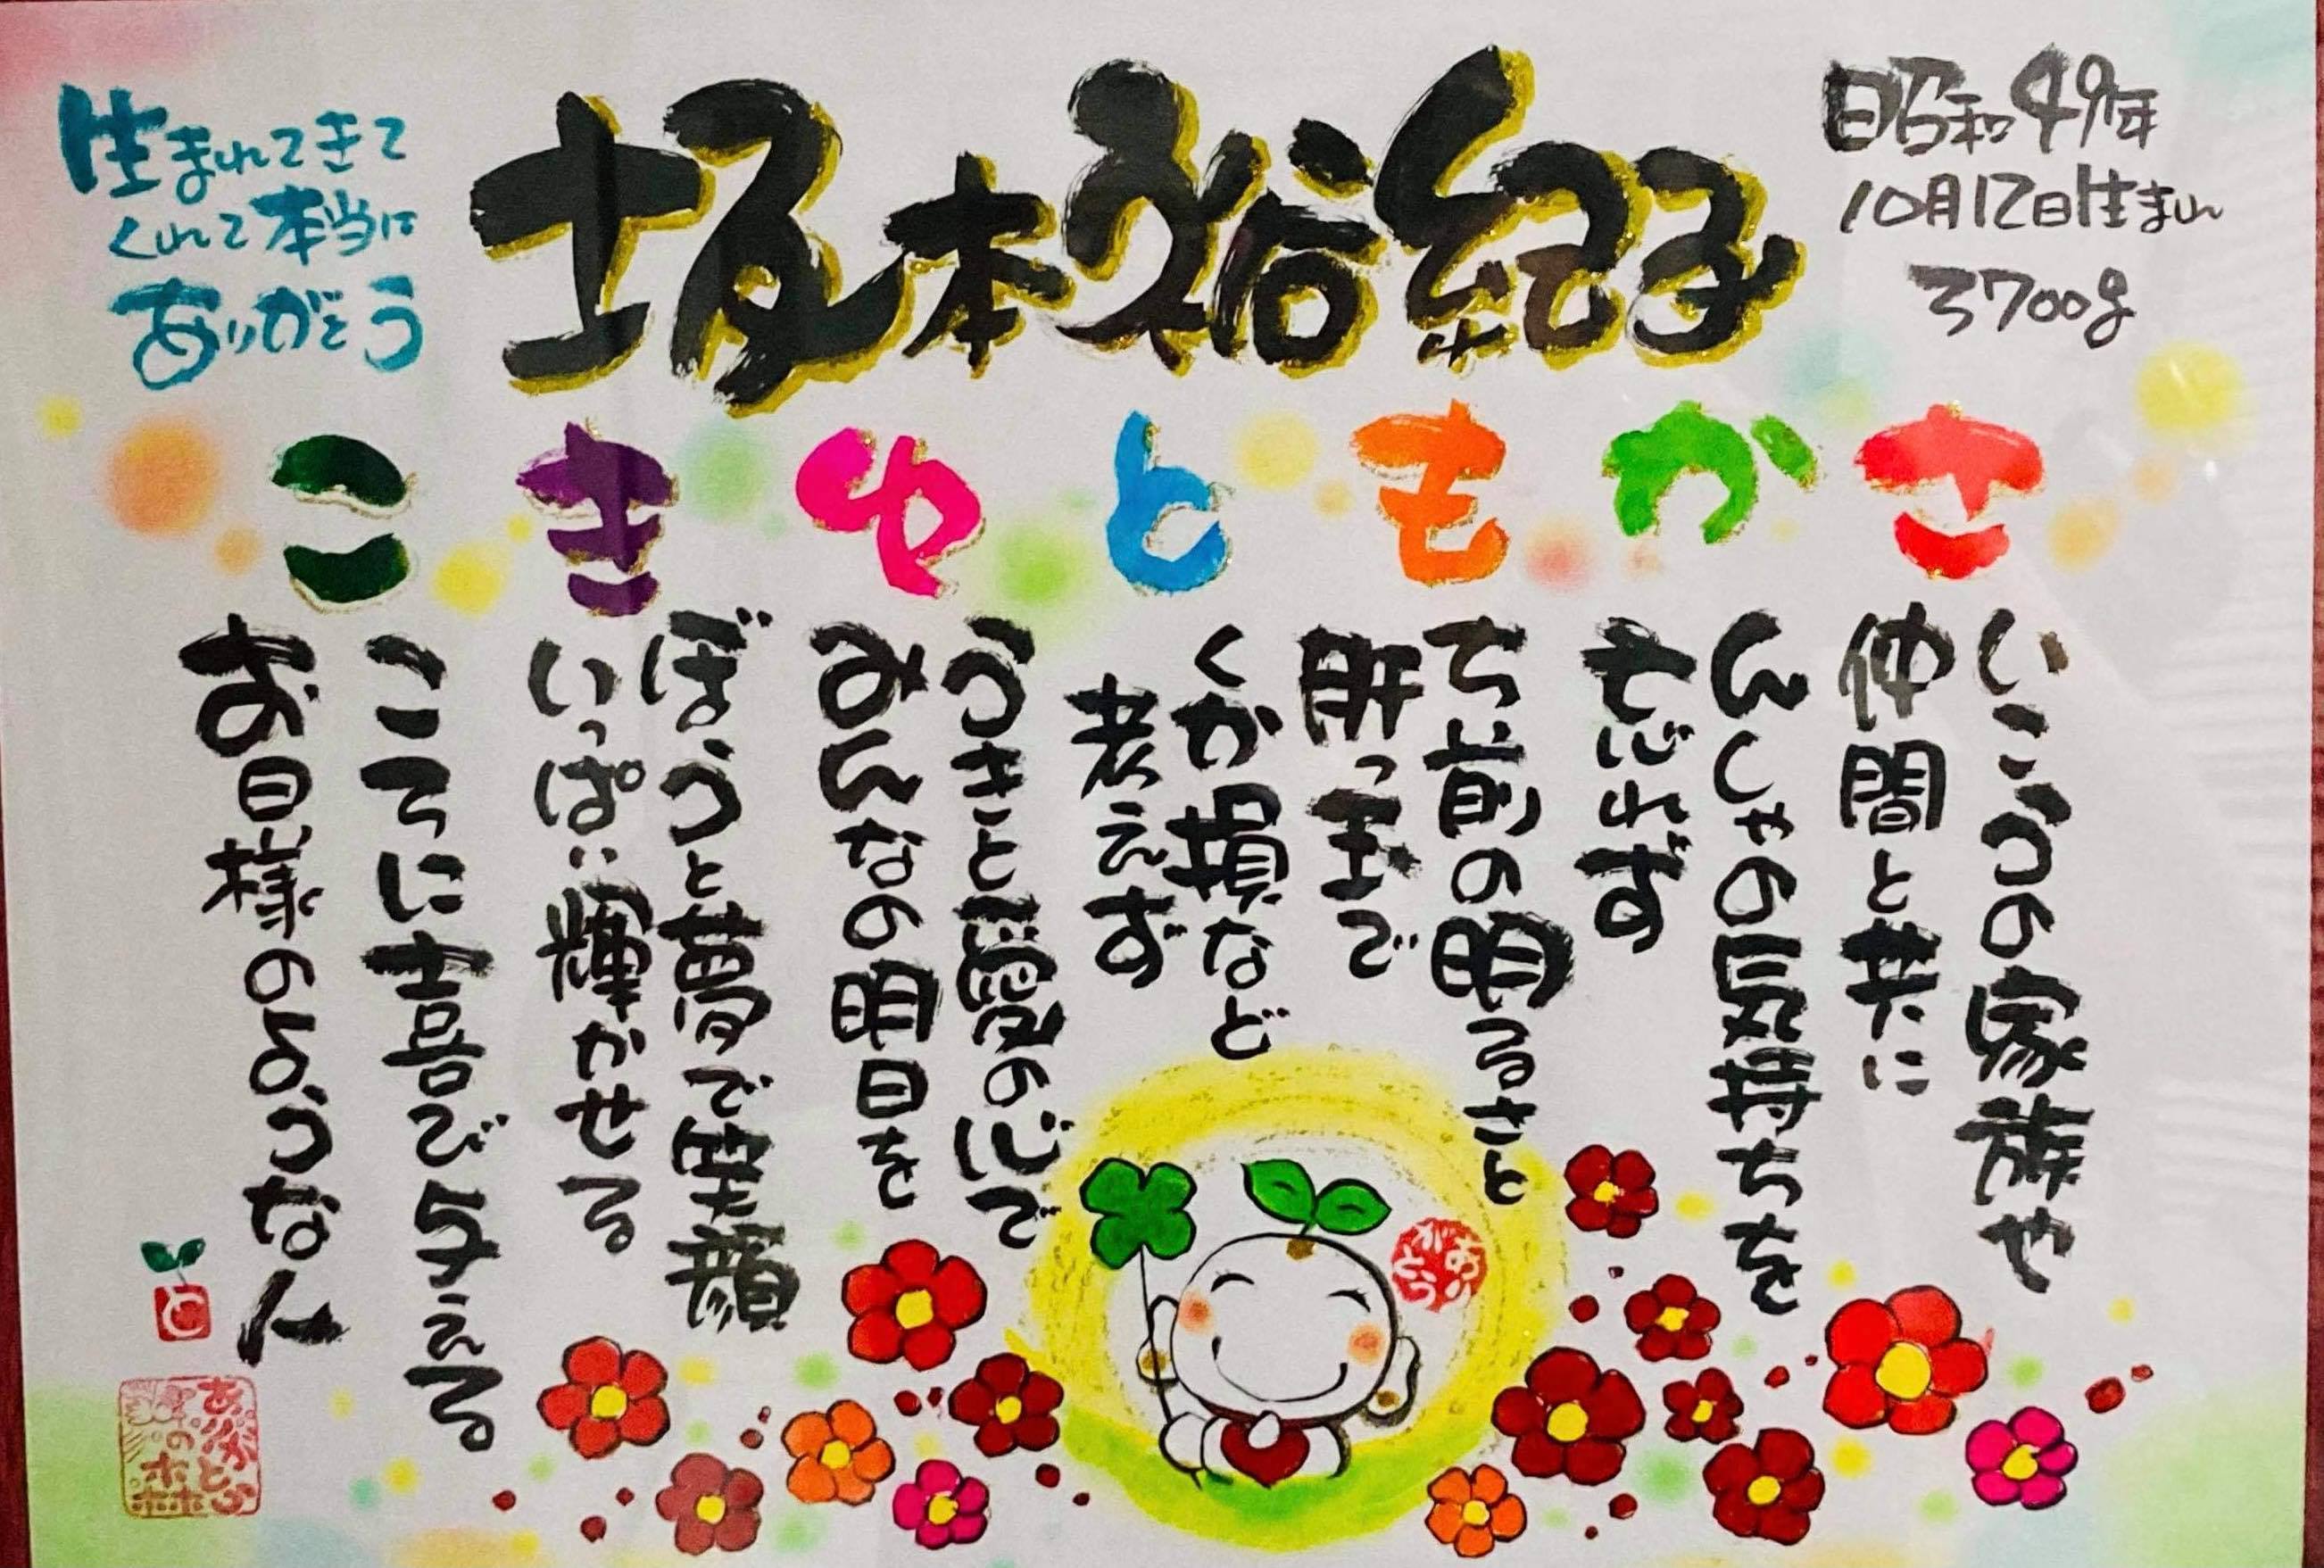 坂本裕紀子
昭和49年
10月12日生まれ
3700g
生まれてきて
くれて本当に
ありがとう
さかもとゆきこ
いこうの家族や
仲間と共に
んしゃの気持ちを
忘れず
ち前の明るさと
肝っ玉で
くか損など
考えず
うきと愛の心で
みんなの明日を
ぼうと夢で笑顔
いっぱい輝かせる
ころに喜び与える
お日様のような人
ありがとう
と
ありがとうの森